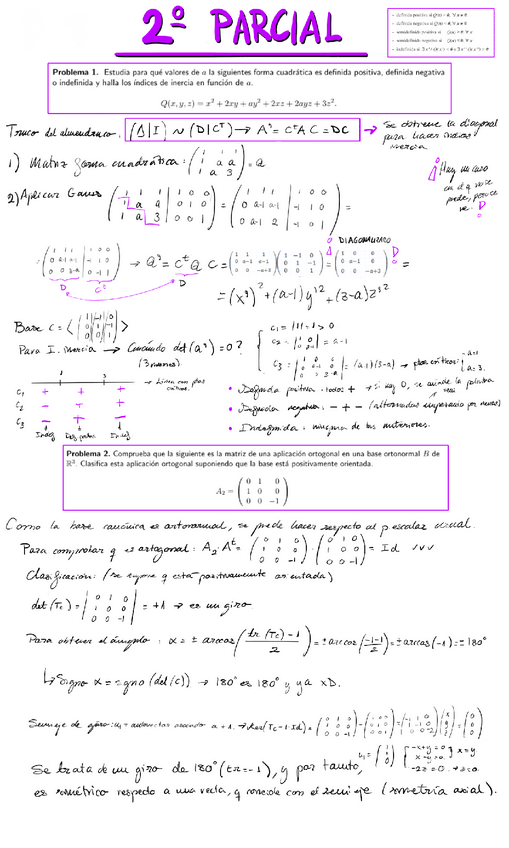 2º PARCIAL
- definida positiva si Q(v) > 0, ∀ v ≠ 0
- definida negativa si Q(v) < 0, ∀ v ≠ 0
Problema 1. Estudia para qué valores de a la siguientes forma cuadrática es definida positiva, definida negativa
o indefinida y halla los índices de inercia en función de a.
Q(x, y, z) = x² + 2xy + ay² + 2xz + 2ayz + 3z².
Truco del almendruco. (A|I) ~ (D|Cᵗ) → A' = CᵗAC = DC → Se obtiene la diagonal
para hacer índices
inercia
1) Matriz forma cuadrática: (1 1 1 / 1 a a / 1 a 3) = Q
2) Aplicar Gauss (1 1 1 | 1 0 0 / 1 a a | 0 1 0 / 1 a 3 | 0 0 1) = (1 1 1 | 1 0 0 / 0 a-1 a-1 | -1 1 0 / 0 a-1 2 | -1 0 1) =
¡Hay un caso
en el q no se
puede
DIAGONALIZADO
= (1 1 1 | 1 0 0 / 0 a-1 a-1 | -1 1 0 / 0 0 3-a | 0 -1 1) → Q' = Cᵗ Q C = (1 1 1 / 0 a-1 a-1 / 0 0 -a+3) (1 -1 0 / 0 1 -1 / 0 0 1) = (1 0 0 / 0 a-1 0 / 0 0 -a+3) =
D Cᵗ D
= (x')² + (a-1)y'² + (3-a)z'²
Base C = < (1 / 0 / 0) (-1 / 1 / 0) (0 / -1 / 1) >
Para I. inercia → Cuándo det(a') = 0?
(3 menores)
C₁ = |1| = 1 > 0
C₂ = |1 0 / 0 a-1| = a-1
C₃ = |1 0 0 / 0 a-1 0 / 0 0 3-a| = (a-1)(3-a) → ptos críticos: a=1 a=3.
1 3 → Línea con ptos
críticos.
C₁ + + +
C₂ − + +
C₃ − + −
Indef Def. positiva Indef
• Definida positiva: todos + → si hay 0, se añade la palabra semi
• Definida negativa: − + − (alternados empezando por menos)
• Indefinida: ninguna de las anteriores.
Problema 2. Comprueba que la siguiente es la matriz de una aplicación ortogonal en una base ortonormal B de
ℝ³. Clasifica esta aplicación ortogonal suponiendo que la base está positivamente orientada.
A₂ = (0 1 0 / 1 0 0 / 0 0 -1)
Como la base canónica es ortonormal, se puede hacer respecto al p escalar usual.
Para comprobar q es ortogonal: A₂·Aᵗ = (0 1 0 / 1 0 0 / 0 0 -1) · (0 1 0 / 1 0 0 / 0 0 -1) = Id ✓✓✓
Clasificación: (se supone q está positivamente orientada)
det (Tc) = |0 1 0 / 1 0 0 / 0 0 -1| = +1 → es un giro
Para obtener el ángulo: α = ± arccos((tr (Tc) - 1)/2) = ± arccos((-1-1)/2) = ± arccos(-1) = ± 180º
↳ Signo α = signo (det(c)) → 180º es 180º y ya xD.
Semieje de giro: u₁ = autovector asociado a +1. → Ker(Tc - 1·Id) = (0 1 0 / 1 0 0 / 0 0 -1) - (1 0 0 / 0 1 0 / 0 0 1) = (-1 1 0 / 1 -1 0 / 0 0 -2) (x / y / z) = (0 / 0 / 0)
u₁ = (1 / 1 / 0) { -x+y=0 x-y=0. } x=y -2z=0. → z=0.
Se trata de un giro de 180º (tr=-1), y por tanto,
es simétrico respecto a una recta, q coincide con el semieje (simetría axial).